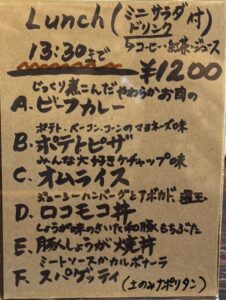 Lunch (ミニサラダ付
ドリンク
コーヒー・紅茶・ジュース
13:30まで
¥1200
じっくり煮こんだやわらかお肉の
A. ビーフカレー
ポテト・ベーコン・コーンのマヨネーズ味
B. ポテトピザ
みんな大好きケチャップ味
C. オムライス
ジューシーハンバーグとアボカド、温玉
D. ロコモコ丼
しょうが味のきいた和豚もちぶた
E. 豚しょうが焼丼
ミートソースかカルボナーラ
F. スパゲッティ (土のみナポリタン)